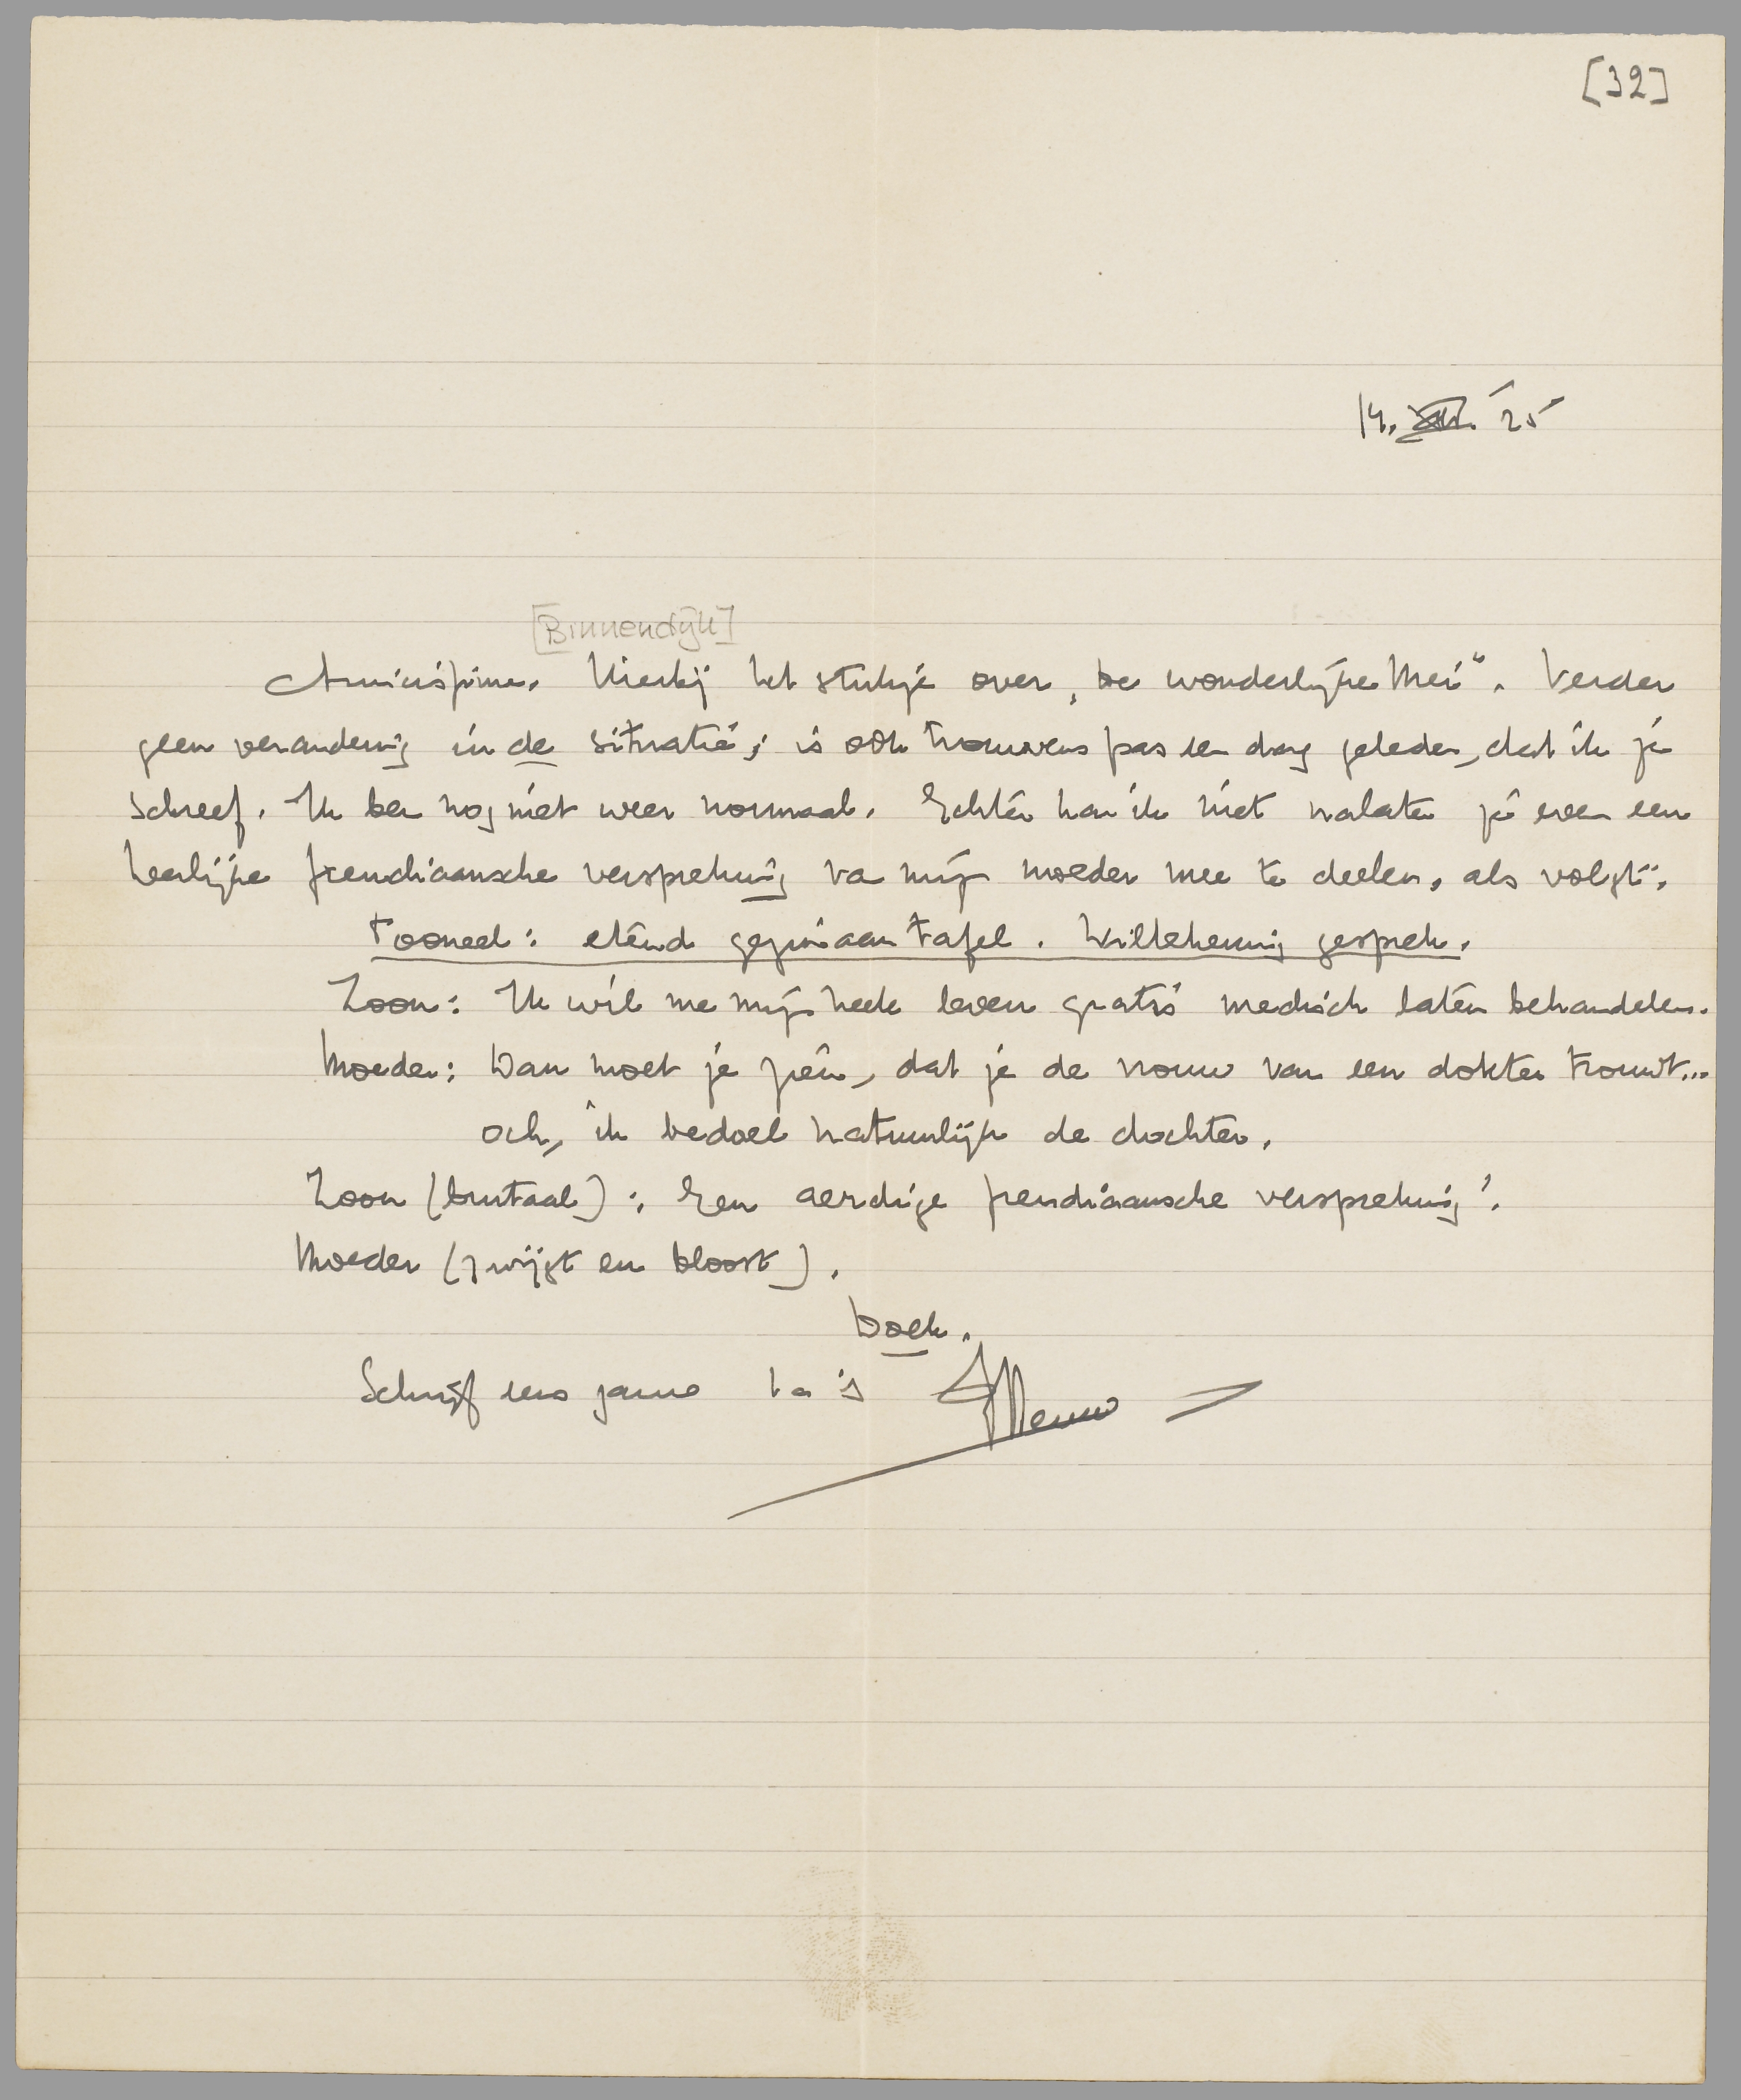 [32]
14. XII. '25
[Binnendijk]
Amicissime. Hierbij het stukje over „De wonderlijke Mei". Verder
geen verandering in de situatie; is ook trouwens pas een dag geleden, dat ik je
schreef. Ik ben nog niet weer normaal. Echter kan ik niet nalaten je even een
heerlijke freudiaansche verspreking van mijn moeder mee te deelen, als volgt:
Tooneel: etend gezin aan tafel. Willekeurig gesprek.
Zoon: Ik wil me mijn heele leven gratis medisch laten behandelen.
Moeder: Dan moet je zien, dat je de vrouw van een dokter trouwt...
och, ik bedoel natuurlijk de dochter.
Zoon (brutaal): Een aardige freudiaansche verspreking!
Moeder (zwijgt en bloost).
Doek.
Schrijf eens gauw t.a.
Menno